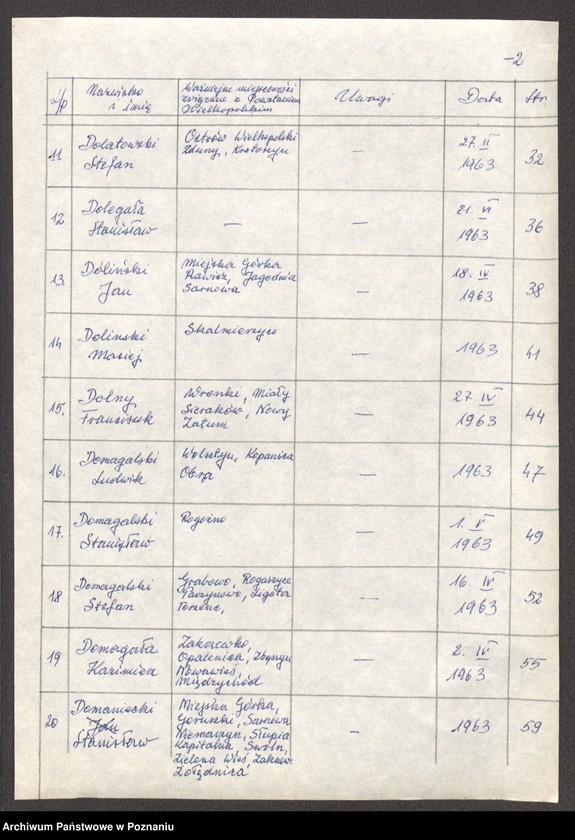 -2
L/p
Nazwisko
i imię
Ważniejsze miejscowości
związane z Powstaniem
Wielkopolskim
Uwagi
Data
Str.
11
Dolatowski
Stefan
Ostrów Wielkopolski
Zduny, Krotoszyn
—
27. II
1963
32
12
Dolegała
Stanisław
—
—
21. VI
1963
36
13.
Doliński
Jan
Miejska Górka
Rawicz, Jagodnia
Sarnowa
—
18. IV
1963
38
14
Doliński
Maciej
Skalmierzyce
—
1963
41
15.
Dolny
Franciszek
Wronki, Miały
Sieraków, Nowy
Zatum
—
27. IV
1963
44
16.
Domagalski
Ludwik
Wolsztyn, Kopanica
Obra
—
1963
47
17.
Domagalski
Stanisław
Rogoźno
—
1. V
1963
49
18
Domagalski
Stefan
Grabowo, Rogaszyce
Parzynowo, Ligota
—
16. IV
1963
52
19
Domagała
Kazimierz
Zakrzewko,
Opalenica, Zbąszyń
Nowawieś,
Międzychód
—
2. IV
1963
55
20
Domaniecki
Jan
Stanisław
Miejska Górka,
Goruszki, Sarnowa
Niemarzyn, Słupia
Kapitulna,
Zielona Wieś,
Żołędnica
—
1963
59
Archiwum Państwowe w Poznaniu